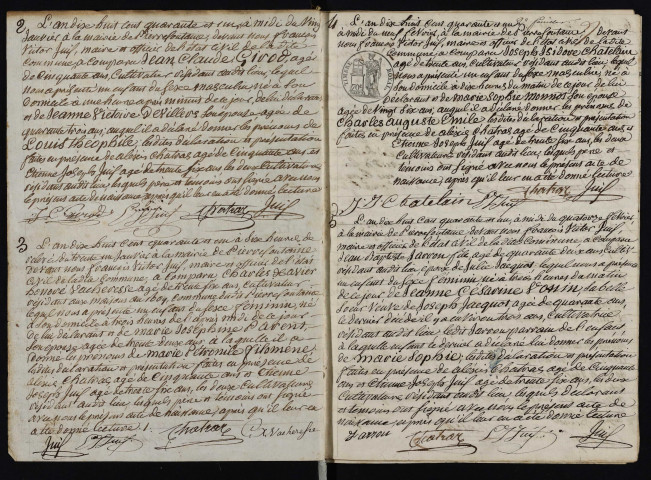 2
L'an dix huit cent quarante et un à midi du vingt
janvier à la mairie de Pierrefontaine, devant nous François
Victor Juif, maire et officier de l'état civil de la dite
Commune, a comparu Jean Claude Girod, âgé
de Cinquante ans, Cultivateur résidant audit lieu, lequel
nous a présenté un enfant du sexe masculin né à son
domicile à une heure après minuit de ce jour, de lui déclarant
et de Jeanne Victoire DeVillers son épouse âgée de
quarante trois ans, auquel il a déclaré donner les prénoms de
Louis Théophile, les dites déclaration et présentation
faites en présence de alexis Chatras âgé de Cinquante ans et
Etienne Joseph Juif âgé de trente six ans, les deux Cultivateurs
résidant audit lieu, lesquels père et témoins ont signé avec nous
le présent acte de naissance après qu'il leur en a été donné lecture
J C Girod Juif Chatras Juif
3
L'an dix huit cent quarante et un à dix heures du
trente un janvier à la mairie de Pierrefontaine
devant nous François Victor Juif, maire et officier de l'état
civil de la dite Commune a comparu Charles Xavier
Vacheresse âgé de trente six ans, cultivateur
résidant aux maisons du bois, commune dudit Pierrefontaine
lequel nous a présenté un enfant du sexe féminin, né
à son domicile à trois heures de l'après midi de ce jour
de lui déclarant et de Marie Joséphine Parent,
son épouse âgée de trente deux ans à laquelle il a
donné les prénoms de Marie Pétronille Philomène
les dites déclaration et présentation faites en présence de
alexis Chatras âgé de Cinquante ans et Etienne
Joseph Juif âgé de trente six ans, les deux Cultivateurs
résidant audit lieu, lesquels père et témoins ont signé
avec nous le présent acte de naissance, après qu'il leur en
a été donné lecture.
Juif Juif Chatras X Vacheresse
4
L'an dix huit cent quarante et un
à midi du neuf février à la mairie de Pierrefontaine devant
nous François Victor Juif, maire et officier de l'état civil de la dite
commune, a comparu Joseph Isidore Chatelain
âgé de trente deux ans, Cultivateur résidant audit lieu, lequel
nous a présenté un enfant du sexe masculin né à
son domicile à dix heures du matin de ce jour de lui
déclarant et de Marie Sophie Monnot son épouse
âgée de vingt six ans, auquel il a déclaré donner les prénoms de
Charles Auguste Emile, les dites déclaration et présentation
faites en présence de alexis Chatras âgé de Cinquante ans et
Etienne Joseph Juif âgé de trente six ans, les deux
Cultivateurs résidant audit lieu, lesquels père et
témoins ont signé avec nous le présent acte de
naissance, après qu'il leur en a été donné lecture
Chatras Juif
J I Chatelain Juif
5
L'an dix huit cent quarante et un, à midi du quatorze février,
à la mairie de Pierrefontaine devant nous François Victor Juif,
maire et officier de l'état civil de la dite Commune, a comparu
Jean Baptiste Jarron fils âgé de quarante deux ans, Cultivateur
résidant audit lieu, époux de Julie Jacquot lequel nous a présenté
un enfant du sexe féminin né à neuf heures du matin
de ce jour de Jeanne Césarine Tossin, sa belle
sœur Veuve de Joseph Jacquot âgée de quarante ans,
le dernier décédé il y a environ trois ans, Cultivatrice
résidant audit lieu, ledit Jarron parrain de l'enfant
à laquelle enfant le dernier a déclaré lui donner les prénoms
de Marie Sophie, les dites déclaration et présentation
faites en présence de alexis Chatras âgé de Cinquante
ans et Etienne Joseph Juif âgé de trente six ans, les deux
Cultivateurs, résidant audit lieu, lesquels déclarant
et témoins ont signé avec nous le présent acte de
naissance, après qu'il leur en a été donné lecture
Jarron Chatras Juif Juif